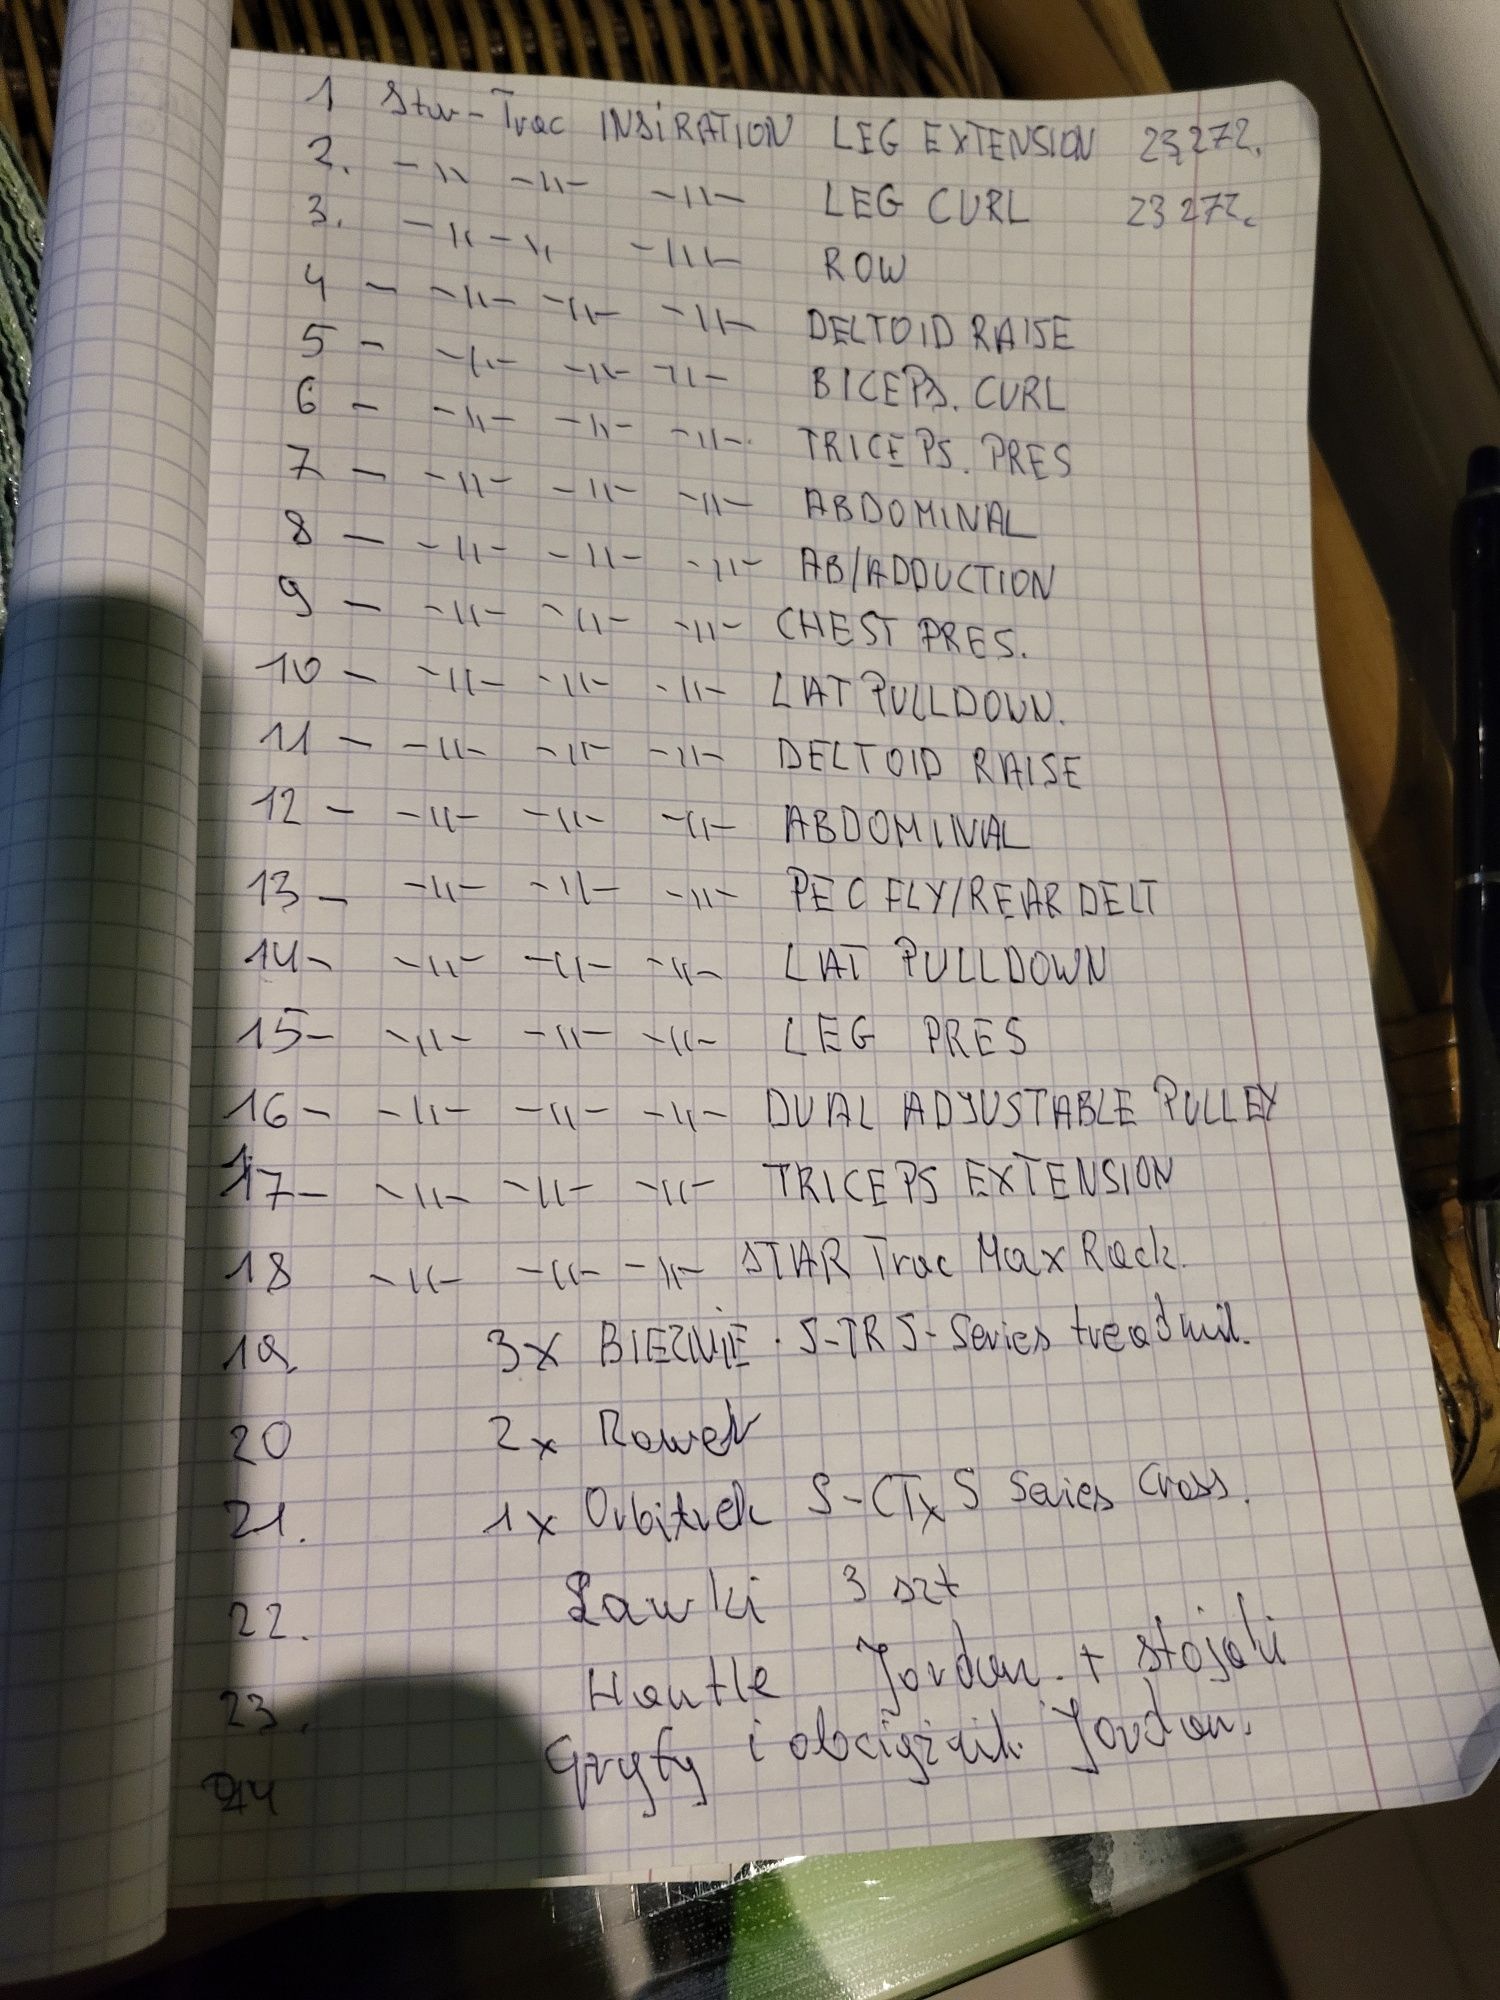 1 Star-Trac INSIRATION LEG EXTENSION 23,272.
2. -||- -||- -||- LEG CURL 23 272.
3. -||- -||- -||- ROW
4 - -||- -||- -||- DELTOID RAISE
5 - -||- -||- -||- BICEPS. CURL
6 - -||- -||- -||- TRICEPS. PRES
7 - -||- -||- -||- ABDOMINAL
8 - -||- -||- -||- AB/ADDUCTION
9 - -||- -||- -||- CHEST PRES.
10 - -||- -||- -||- LAT PULLDOWN.
11 - -||- -||- -||- DELTOID RAISE
12 - -||- -||- -||- ABDOMINAL
13 - -||- -||- -||- PEC FLY/REAR DELT
14 - -||- -||- -||- LAT PULLDOWN
15 - -||- -||- -||- LEG PRES
16 - -||- -||- -||- DUAL ADJUSTABLE PULLEY
17 - -||- -||- -||- TRICEPS EXTENSION
18 -||- -||- -||- STAR Trac Max Rack.
19. 3x BIEŻNIE. S-TR S-Series treadmil.
20 2x Rower
21. 1x Orbitrek S-CTx S Series Cross.
22. Ławki 3 szt
23. Hantle Jordan. + stojaki
24 Gryfy i obciążnik. Jordan.